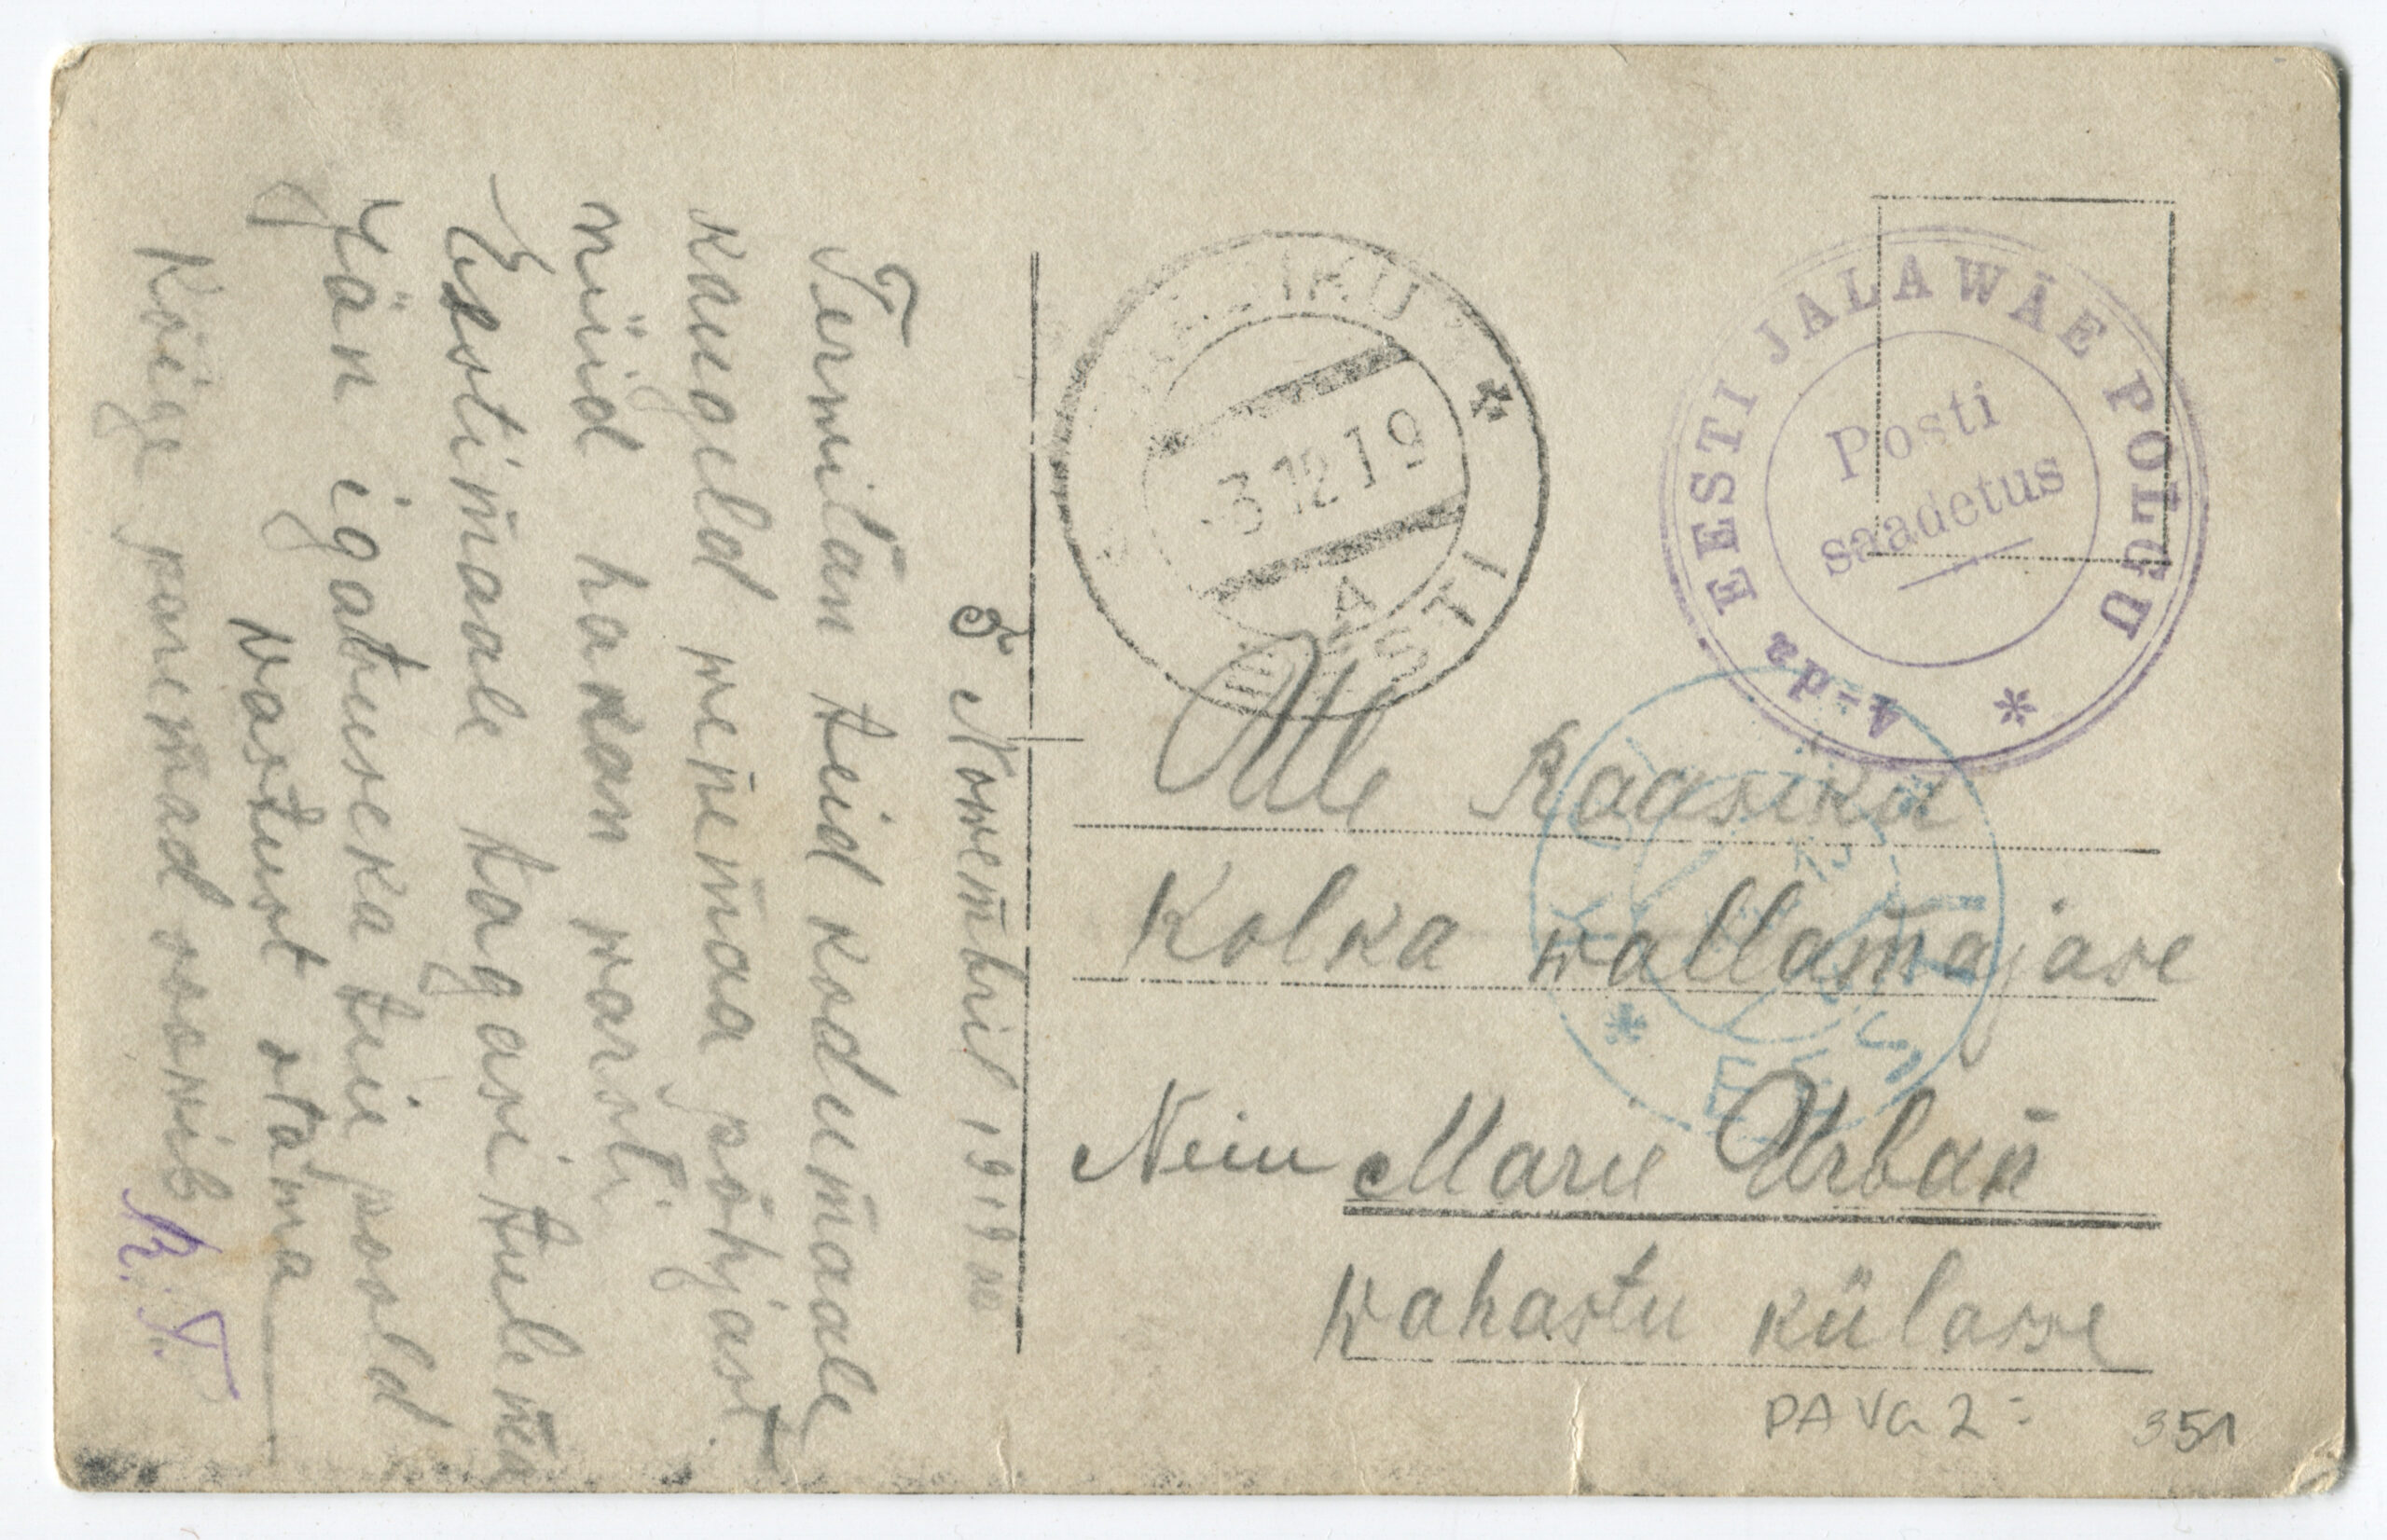 5 Nowembril 1919 a
Terwitan teid kodumaale
kaugeld wenemaa põhjast
nüid hakan warsti
Eestimaale tagasi tulema
Jän igatuseka teie poold
wastust otama
Kõige paremad soowib
R. T.
RAASIKU
EESTI
3 12 19
A
4-da EESTI JALAWÄE POLGU
Posti
saadetus
Ule Raasiku
Kolka wallamajase
Neiu Marie Urban
Wahastu külasse
PA VG 2: 351